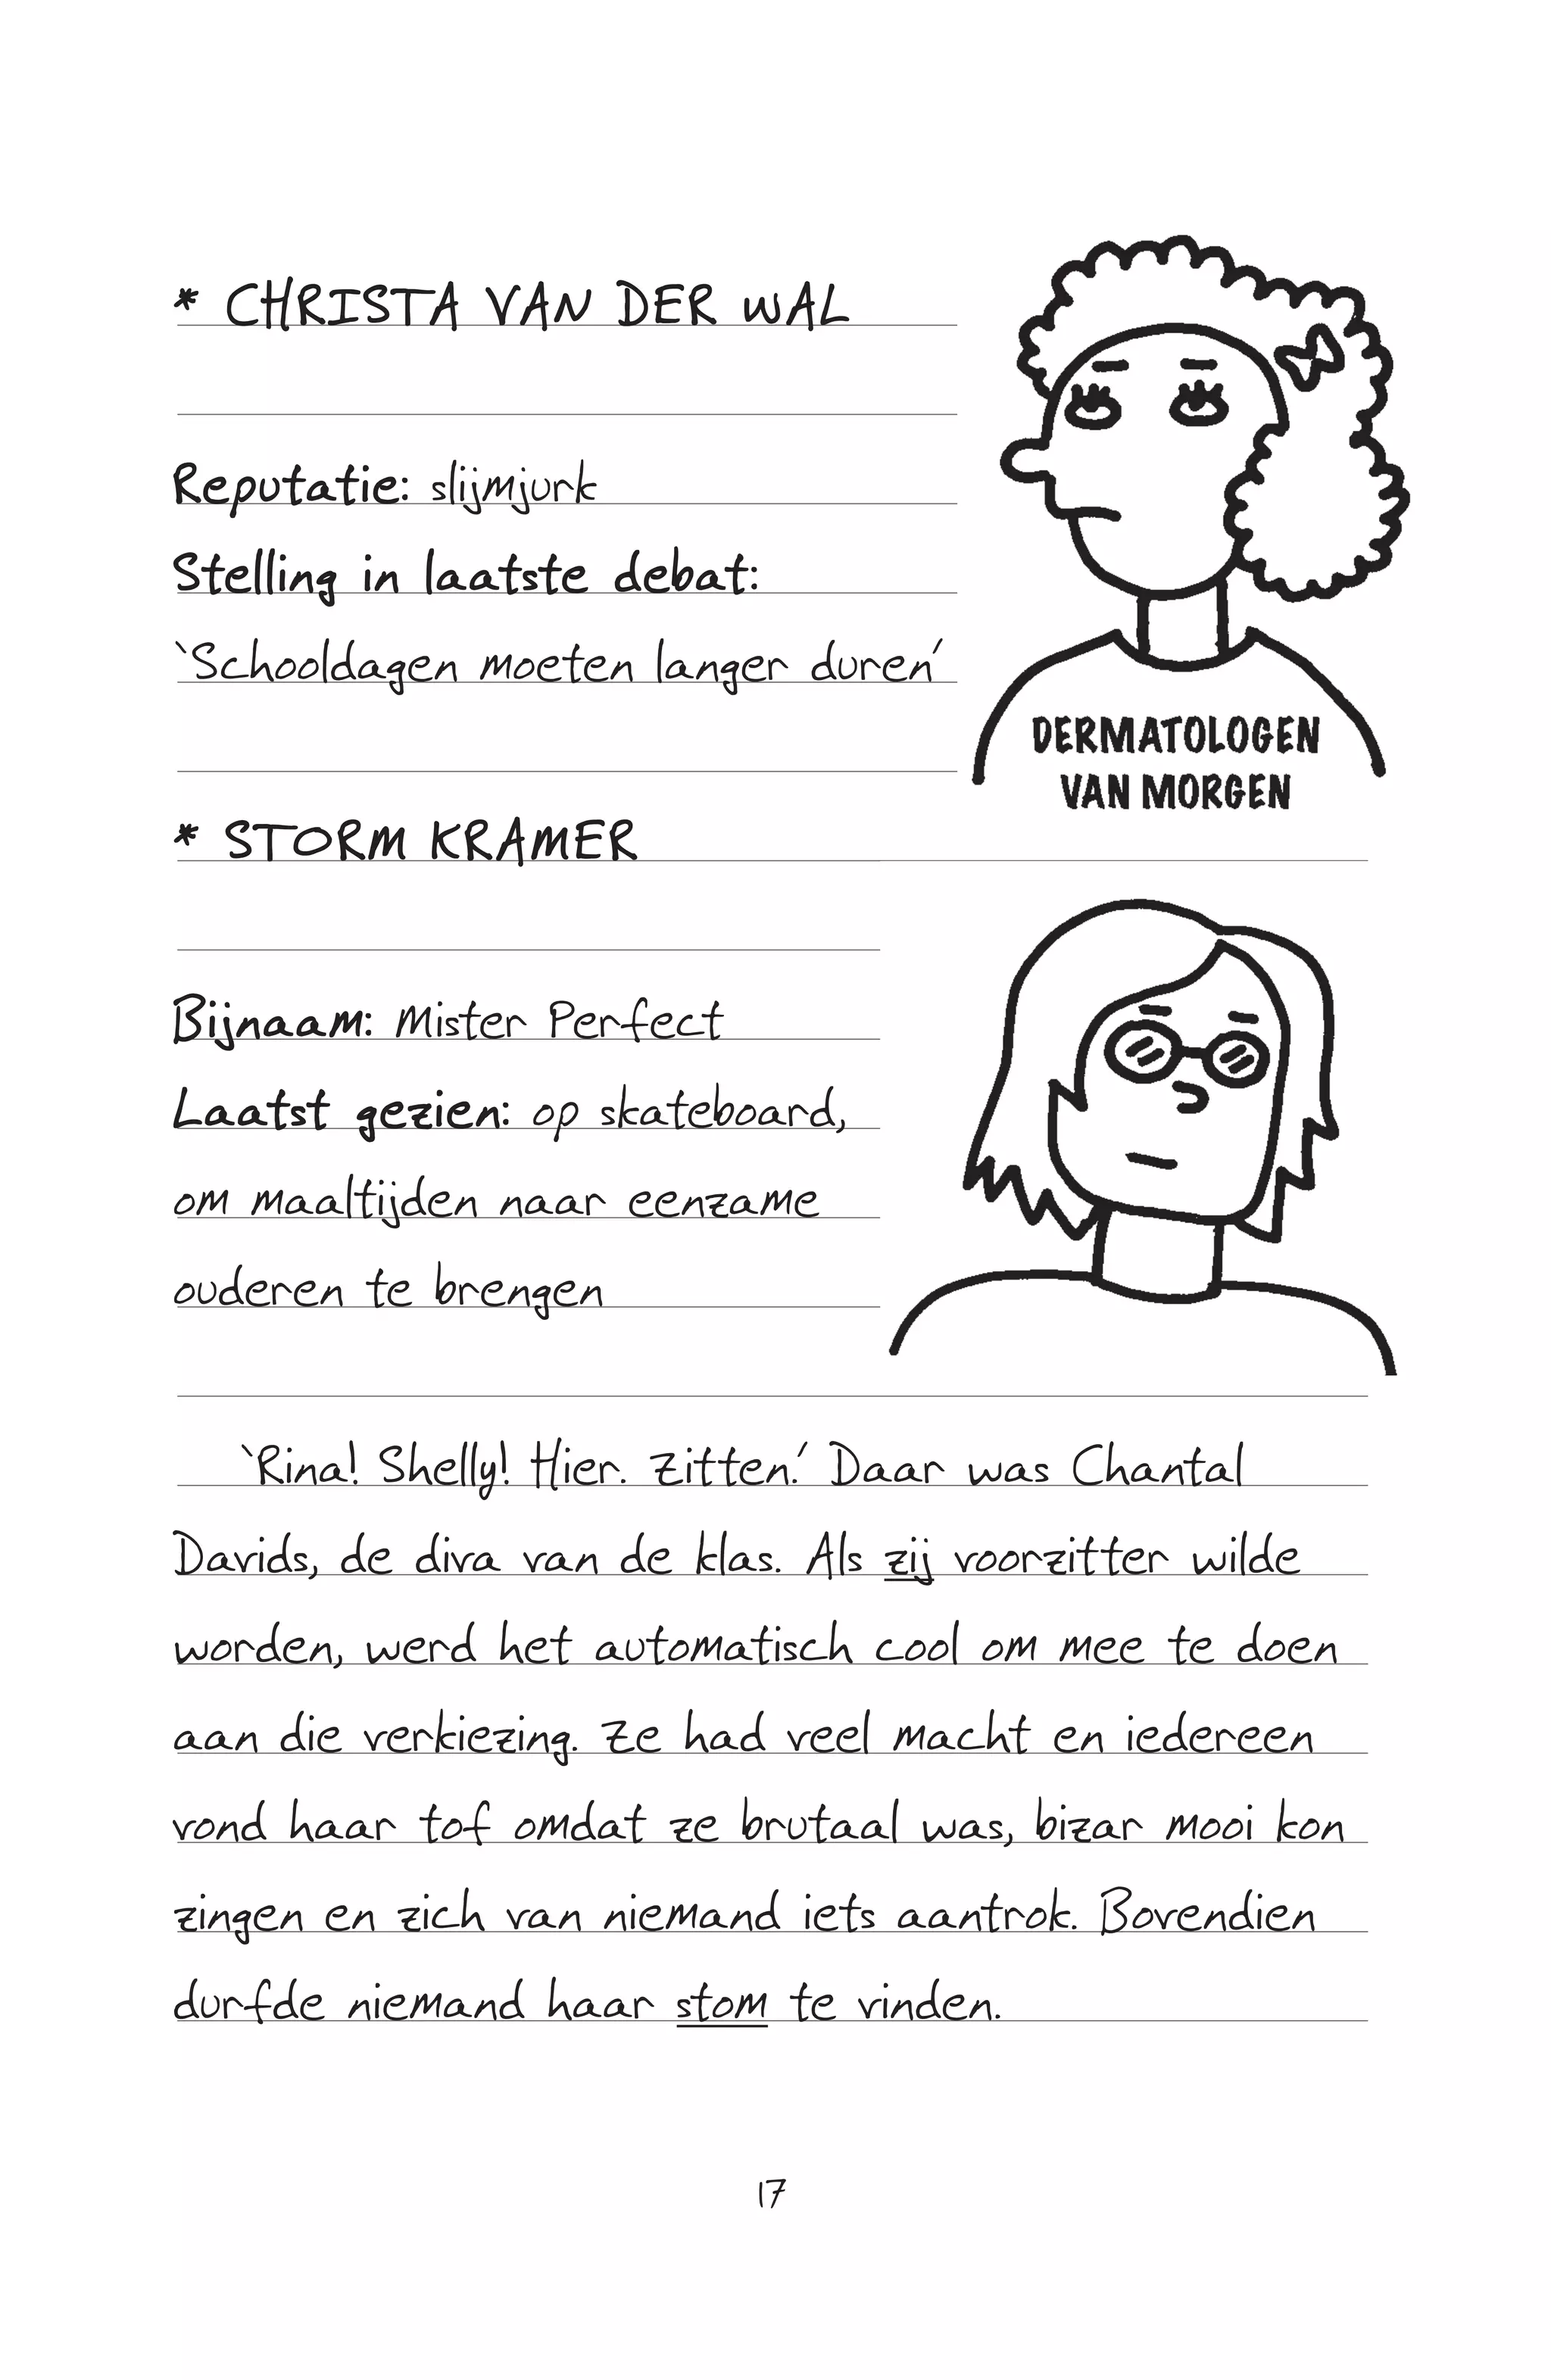 * CHRISTA VAN DER WAL
Reputatie: slijmjurk
Stelling in laatste debat:
‘Schooldagen moeten langer duren’
DERMATOLOGEN
VAN MORGEN
* STORM KRAMER
Bijnaam: Mister Perfect
Laatst gezien: op skateboard,
om maaltijden naar eenzame
ouderen te brengen
‘Rina! Shelly! Hier. Zitten.’ Daar was Chantal
Davids, de diva van de klas. Als zij voorzitter wilde
worden, werd het automatisch cool om mee te doen
aan die verkiezing. Ze had veel macht en iedereen
vond haar tof omdat ze brutaal was, bizar mooi kon
zingen en zich van niemand iets aantrok. Bovendien
durfde niemand haar stom te vinden.
17